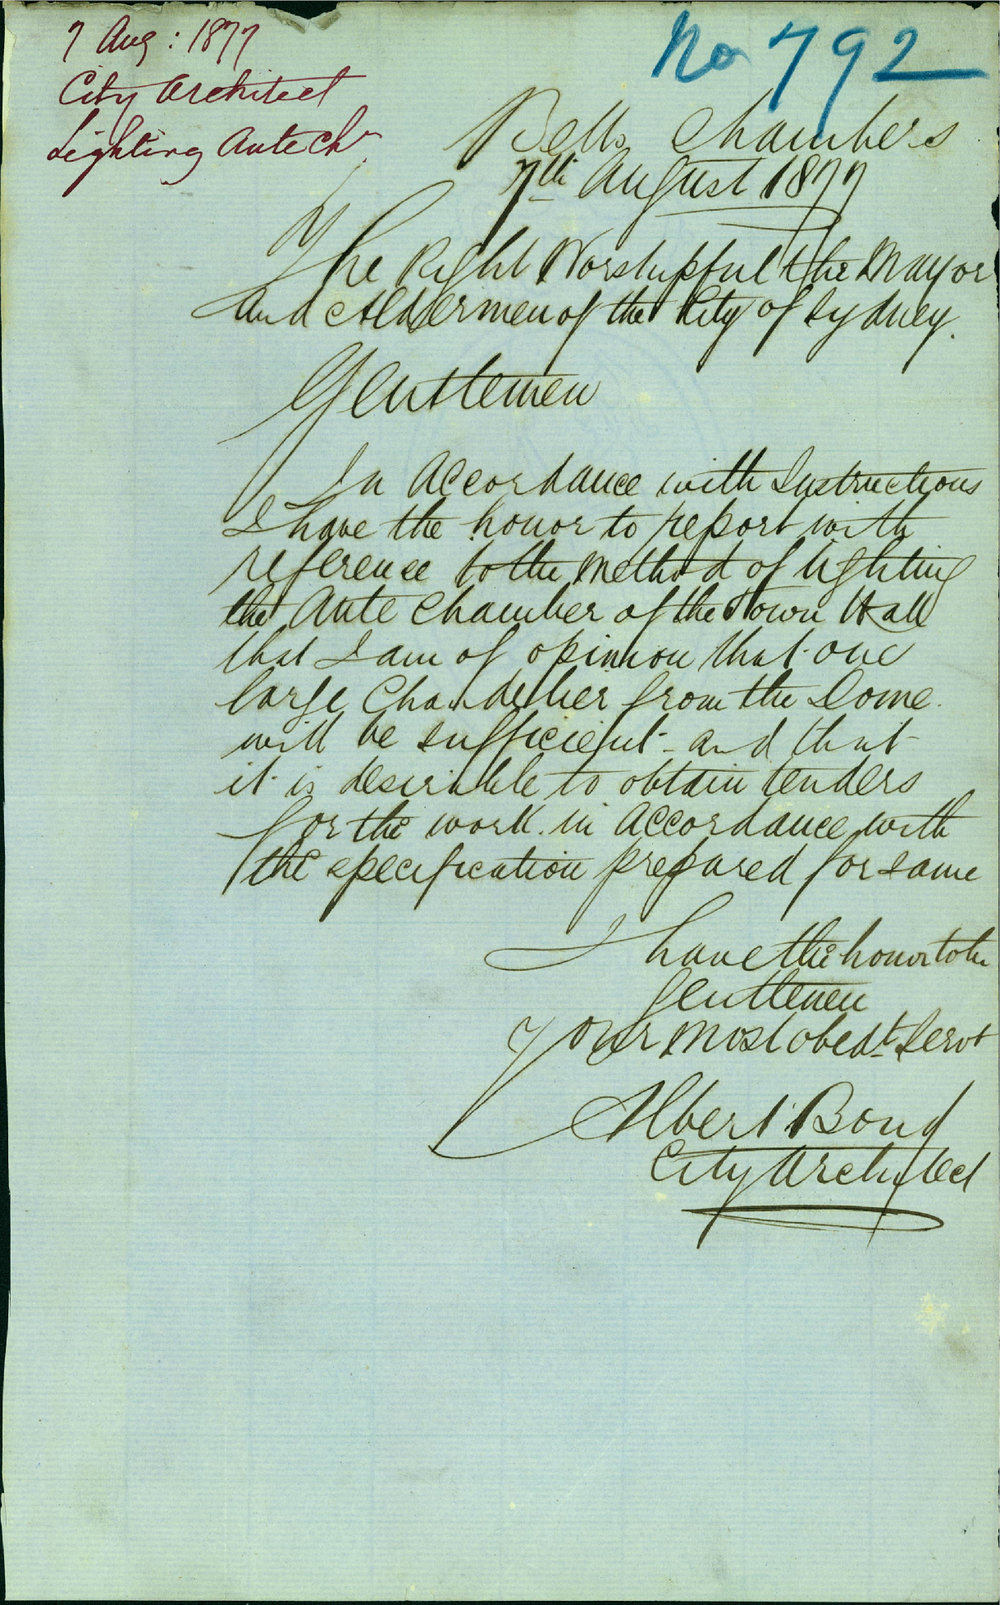 7 Aug: 1877
City Architect
Lighting Ante Chr
No 792
Bells Chambers
7th August 1877
The Right Worshipful the Mayor
and Aldermen of the City of Sydney.
Gentlemen
In Accordance with Instructions
I have the honor to report with
reference to the method of lighting
the Ante Chamber of the Town Hall
that I am of opinion that one
large Chandelier from the Dome
will be sufficient - and that
it is desirable to obtain tenders
for the work in accordance with
the specification prepared for same
I have the honor to be
Gentlemen
Your Most obedt. Servt
Albert Bond
City Architect